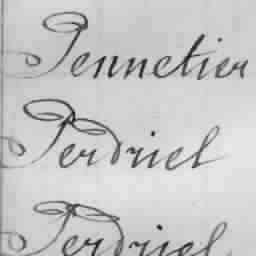 Pennetier
Perdriel
Perdriel